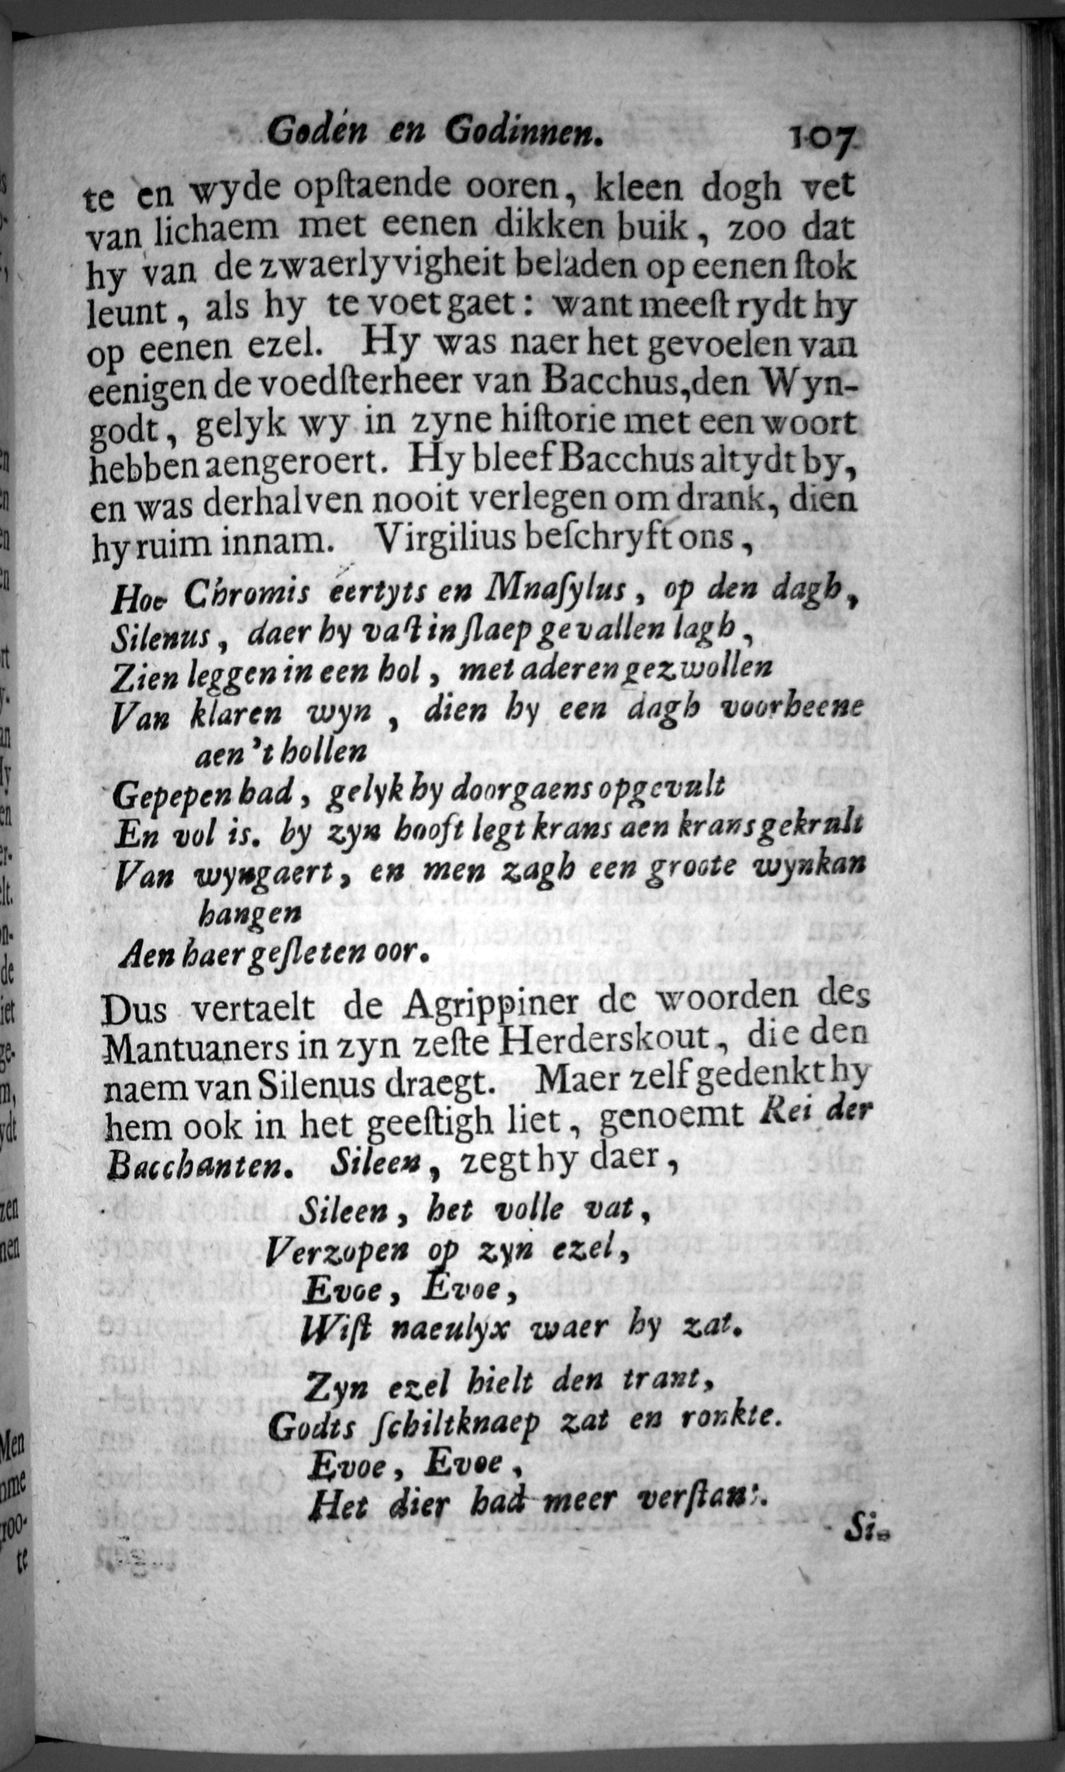 Goden en Godinnen. 107
te en wyde opſtaende ooren, kleen dogh vet
van lichaem met eenen dikken buik, zoo dat
hy van de zwaerlyvigheit beladen op eenen ſtok
leunt, als hy te voet gaet: want meeſt rydt hy
op eenen ezel. Hy was naer het gevoelen van
eenigen de voedſterheer van Bacchus, den Wyn-
godt, gelyk wy in zyne hiſtorie met een woort
hebben aengeroert. Hy bleef Bacchus altydt by,
en was derhalven nooit verlegen om drank, dien
hy ruim innam. Virgilius beſchryft ons,
Hoe Chromis eertyts en Mnaſylus, op den dagh,
Silenus, daer hy vaſt in ſlaep gevallen lagh,
Zien leggen in een hol, met aderen gezwollen
Van klaren wyn, dien hy een dagh voorheene
aen 't hollen
Gepepen had, gelyk hy doorgaens opgevult
En vol is. by zyn hooft legt krans aen krans gekrult
Van wyngaert, en men zagh een groote wynkan
hangen
Aen haer geſleten oor.
Dus vertaelt de Agrippiner de woorden des
Mantuaners in zyn zeſte Herderskout, die den
naem van Silenus draegt. Maer zelf gedenkt hy
hem ook in het geeſtigh liet, genoemt Rei der
Bacchanten. Sileen, zegt hy daer,
Sileen, het volle vat,
Verzopen op zyn ezel,
Evoe, Evoe,
Wiſt naeulyx waer hy zat.
Zyn ezel hielt den trant,
Godts ſchiltknaep zat en ronkte.
Evoe, Evoe,
Het dier had meer verſtant.
Si-